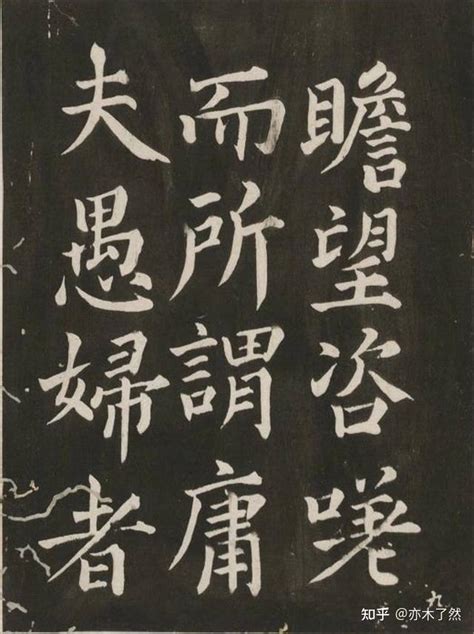 瞻望咨嗟
而所謂庸
夫愚婦者
九
知乎 @亦木了然